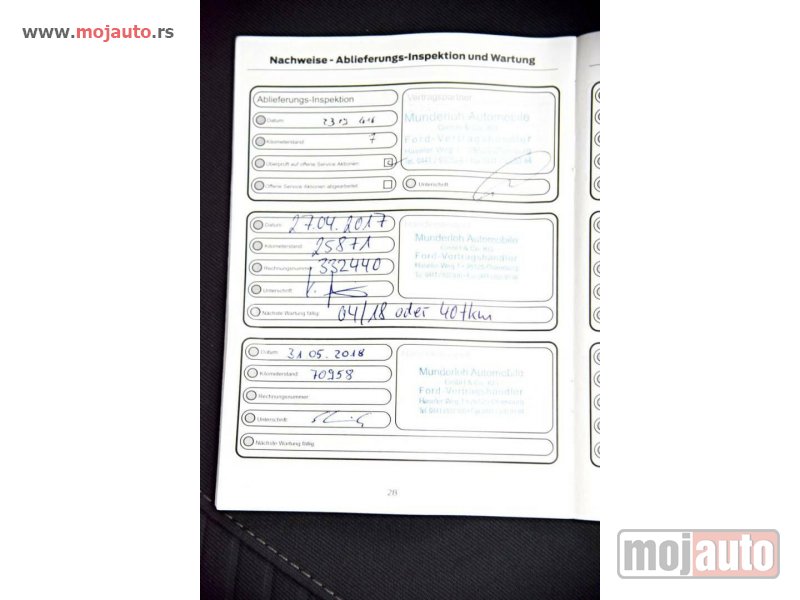 www.mojauto.rs
Nachweise - Ablieferungs-Inspektion und Wartung
Ablieferungs-Inspektion
Vertragspartner
Datum:
Munderloh Automobile
GmbH & Co. KG
Kilometerstand: 7
Ford-Vertragshändler
Überprüft auf offene Service Aktionen
Offene Service Aktionen abgearbeitet
Unterschrift
Datum: 27.04.2017
Kilometerstand: 25871
Munderloh Automobile
GmbH & Co. KG
Ford-Vertragshändler
Rechnungsnummer: 332440
Unterschrift
Nächste Wartung fällig: 04/18 oder 40tkm
Datum: 31.05.2018
Kilometerstand: 70958
Munderloh Automobile
GmbH & Co. KG
Ford-Vertragshändler
Rechnungsnummer:
Unterschrift:
Nächste Wartung fällig:
28
mojauto